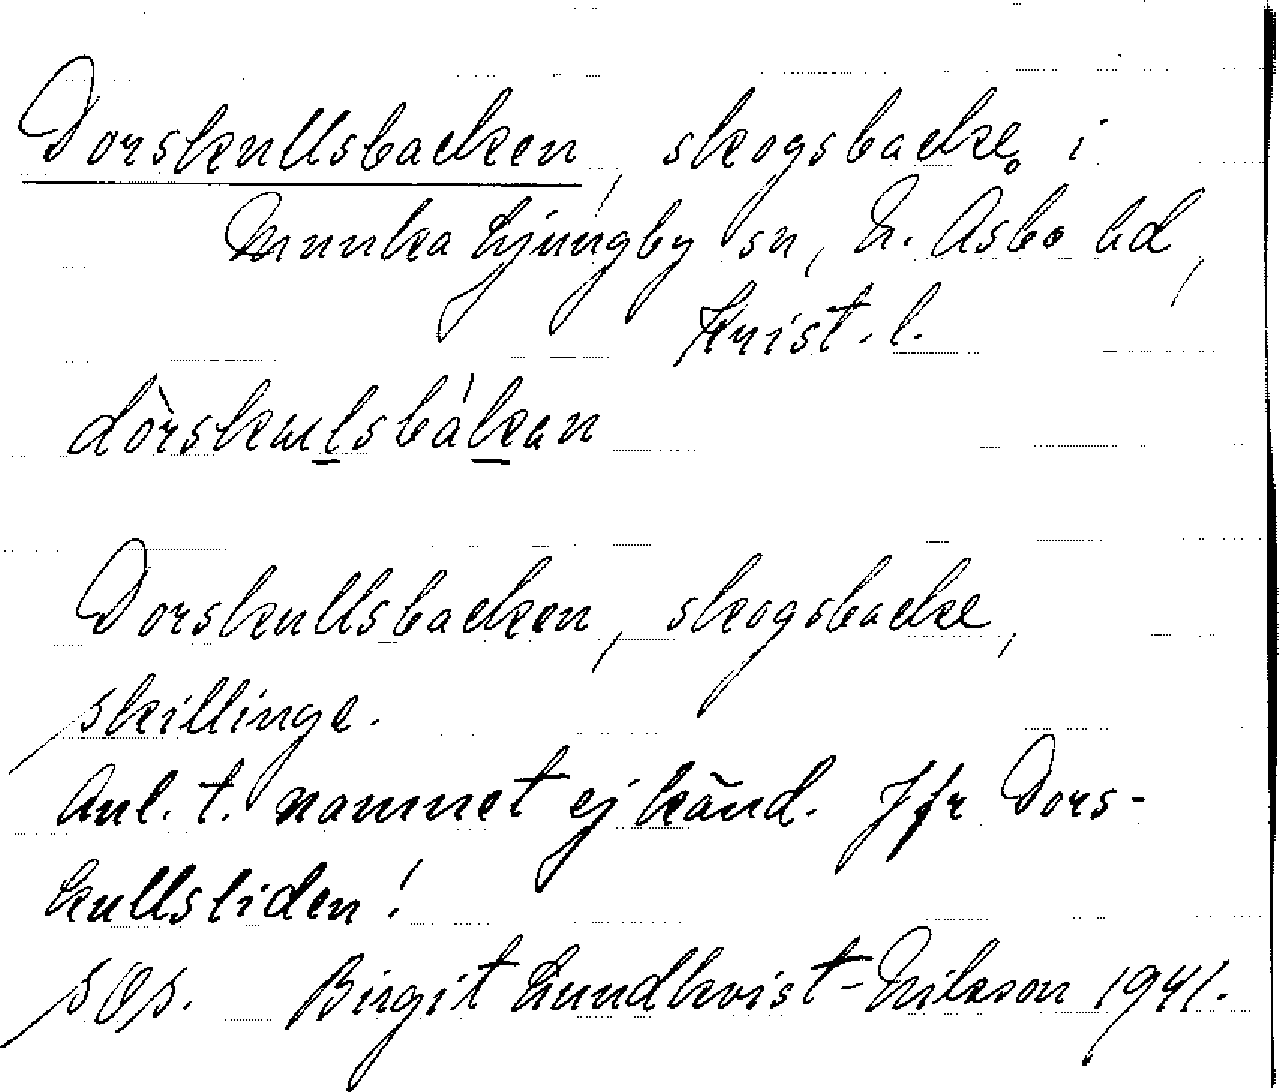 Dorskullsbacken, skogsbacke i
Munka Ljungby sn, N. Åsbo hd,
Krist. l.
dòrskulsbákan
Dorskullsbacken, skogsbacke,
Skillinge.
Anl. t. namnet ej känd. Jfr Dors-
kullsliden!
Birgit Lundkvist-Nilsson 1941.